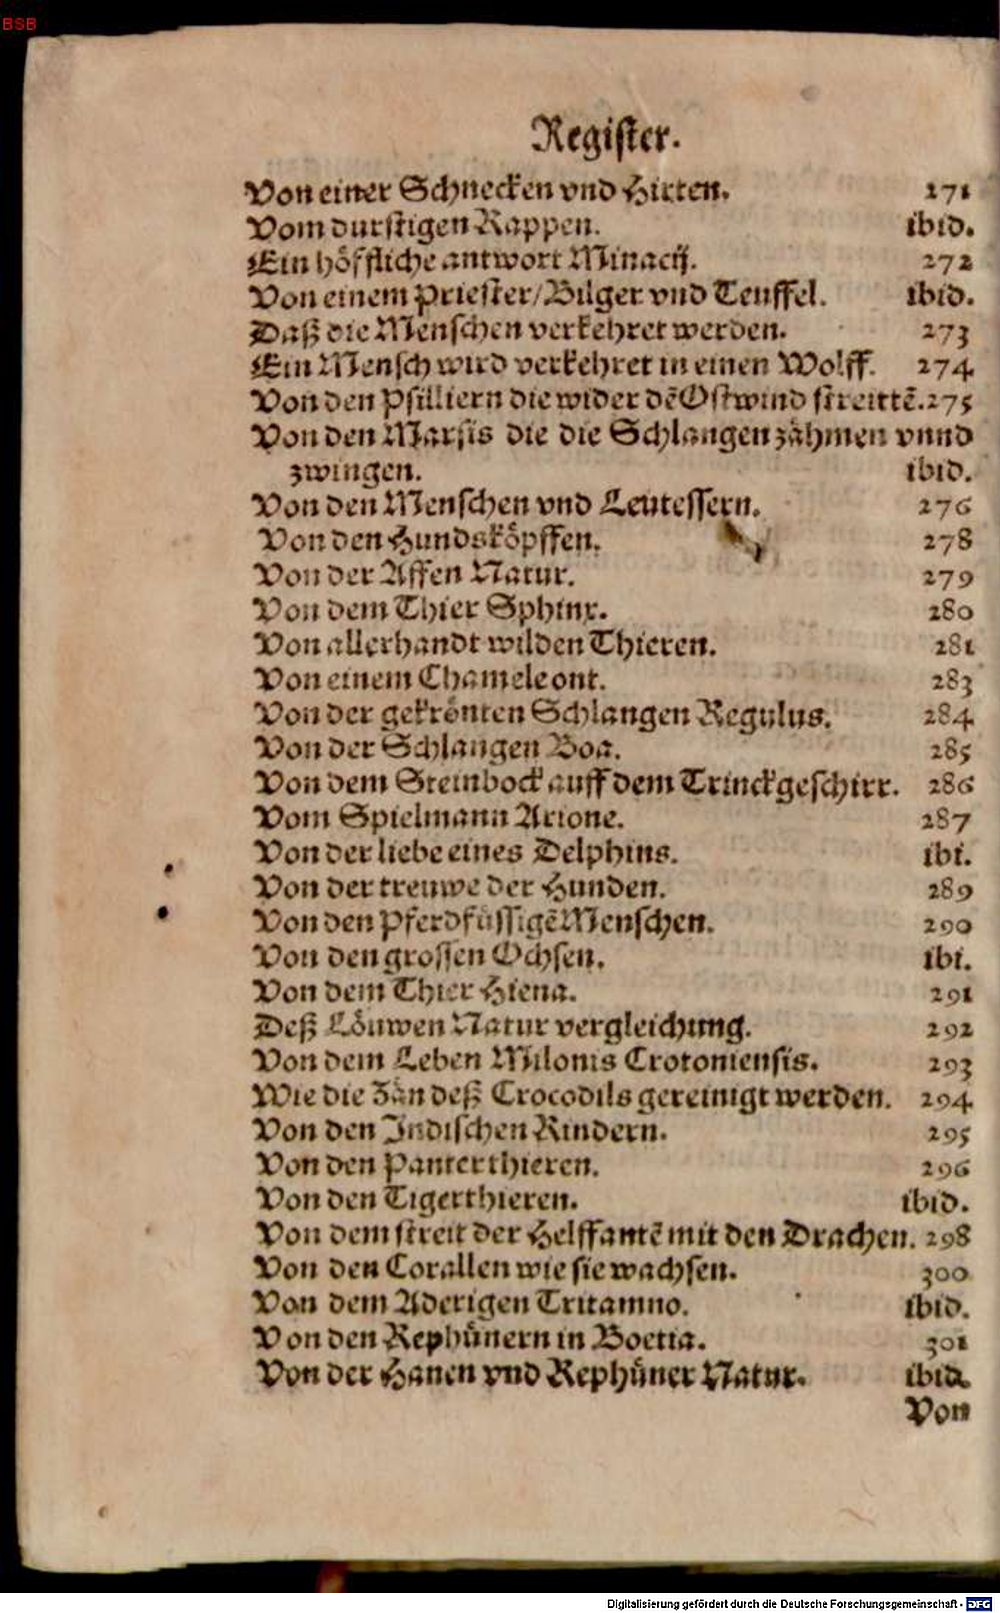 BSB
Register.
Von einer Schnecken vnd Hirten. 271
Vom durstigen Rappen. ibid.
Ein höffliche antwort Minacij. 272
Von einem Priester/Bilger vnd Teuffel. ibid.
Daß die Menschen verkehret werden. 273
Ein Mensch wird verkehret in einen Wolff. 274
Von den Psilliern die wider dē Ostwind streittē. 275
Von den Marsis die die Schlangen zähmen vnnd
zwingen. ibid.
Von den Menschen vnd Leutessern. 276
Von den Hundsköpffen. 278
Von der Affen Natur. 279
Von dem Thier Sphinx. 280
Von allerhandt wilden Thieren. 281
Von einem Chameleont. 283
Von der gekrönten Schlangen Regulus. 284
Von der Schlangen Boa. 285
Von dem Steinbock auff dem Trinckgeschirr. 286
Vom Spielmann Arione. 287
Von der liebe eines Delphins. ibi.
Von der treuwe der Hunden. 289
Von den Pferdfüssigē Menschen. 290
Von den grossen Ochsen. ibi.
Von dem Thier Hiena. 291
Deß Löuwen Natur vergleichung. 292
Von dem Leben Milonis Crotoniensis. 293
Wie die Zän deß Crocodils gereinigt werden. 294
Von den Indischen Rindern. 295
Von den Panterthieren. 296
Von den Tigerthieren. ibid.
Von dem streit der Helffantē mit den Drachen. 298
Von den Corallen wie sie wachsen. 300
Von dem Aderigen Tritanno. ibid.
Von den Rephünern in Boetia. 301
Von der Hanen vnd Rephüner Natur. ibid.
Von
Digitalisierung gefördert durch die Deutsche Forschungsgemeinschaft - DFG